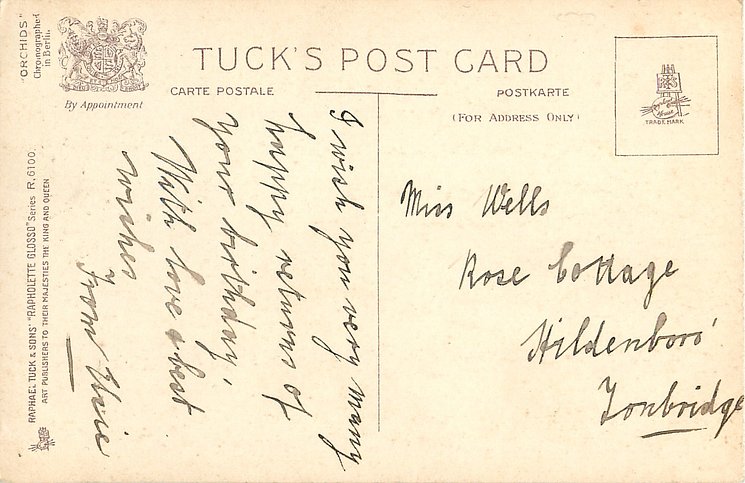 "ORCHIDS"
Chromographed
in Berlin.
By Appointment
TUCK'S POST CARD
CARTE POSTALE
POSTKARTE
(FOR ADDRESS ONLY)
TRADE MARK
RAPHAEL TUCK & SONS' "RAPHOLETTE GLOSSO" Series R. 6100.
ART PUBLISHERS TO THEIR MAJESTIES THE KING AND QUEEN
I wish you very many
happy returns of
your birthday,
With love & best
wishes
From Elsie
Miss Wells
Rose Cottage
Hildenboro'
Tonbridge